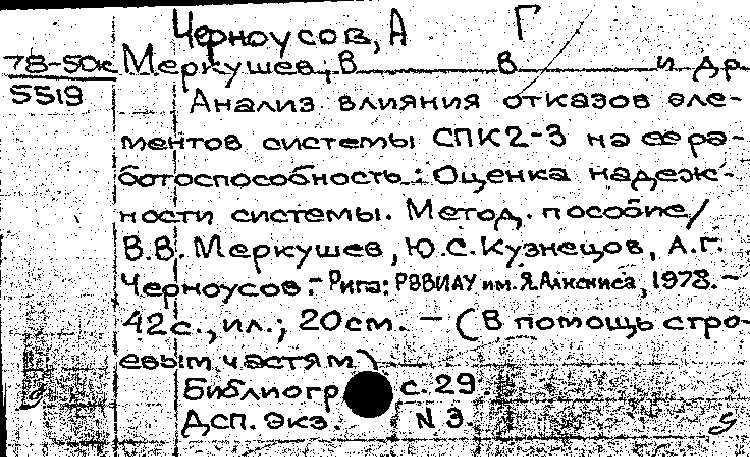 Черноусов, А Г
78-50к Меркушев, В В и др
5519
Анализ влияния отказов эле-
ментов системы СПК2-3 на ее ра-
ботоспособность: Оценка надеж-
ности системы. Метод. пособие/
В.В. Меркушев, Ю.С. Кузнецов, А.Г.
Черноусов.- Рига: РВВИАУ им. Я.Алксниса, 1978.-
42с., ил.; 20см. - (В помощь стро-
евым частям)
Библиогр с. 29.
Дсп. Экз. N 3.